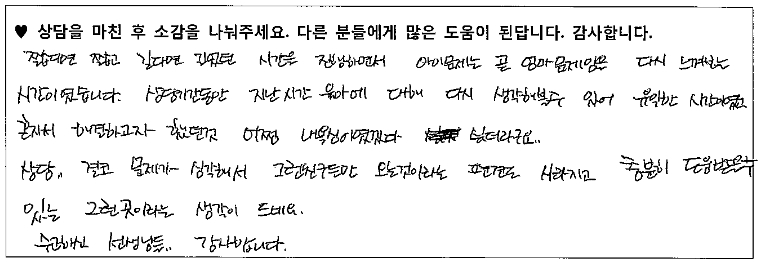 ♥ 상담을 마친 후 소감을 나눠주세요. 다른 분들에게 많은 도움이 된답니다. 감사합니다.
짧다면 짧고 길다면 길었던 시간을 진행하면서 아이문제는 곧 엄마문제임을 다시 느껴보는
시간이었습니다. 상담기간동안 지난시간 육아에 대해 다시 생각해볼수 있어 유익한 시간이었고
혼자서 해결하고자 했던것 어쩜 내욕심이였겠다 싶더라구요..
상담.. 결코 문제가 심각해서 그런친구들만 오는것이라는 편견도 사라지고 충분히 도움받을수
있는 그런곳이라는 생각이 드네요.
수고하신 선생님들.. 감사합니다.